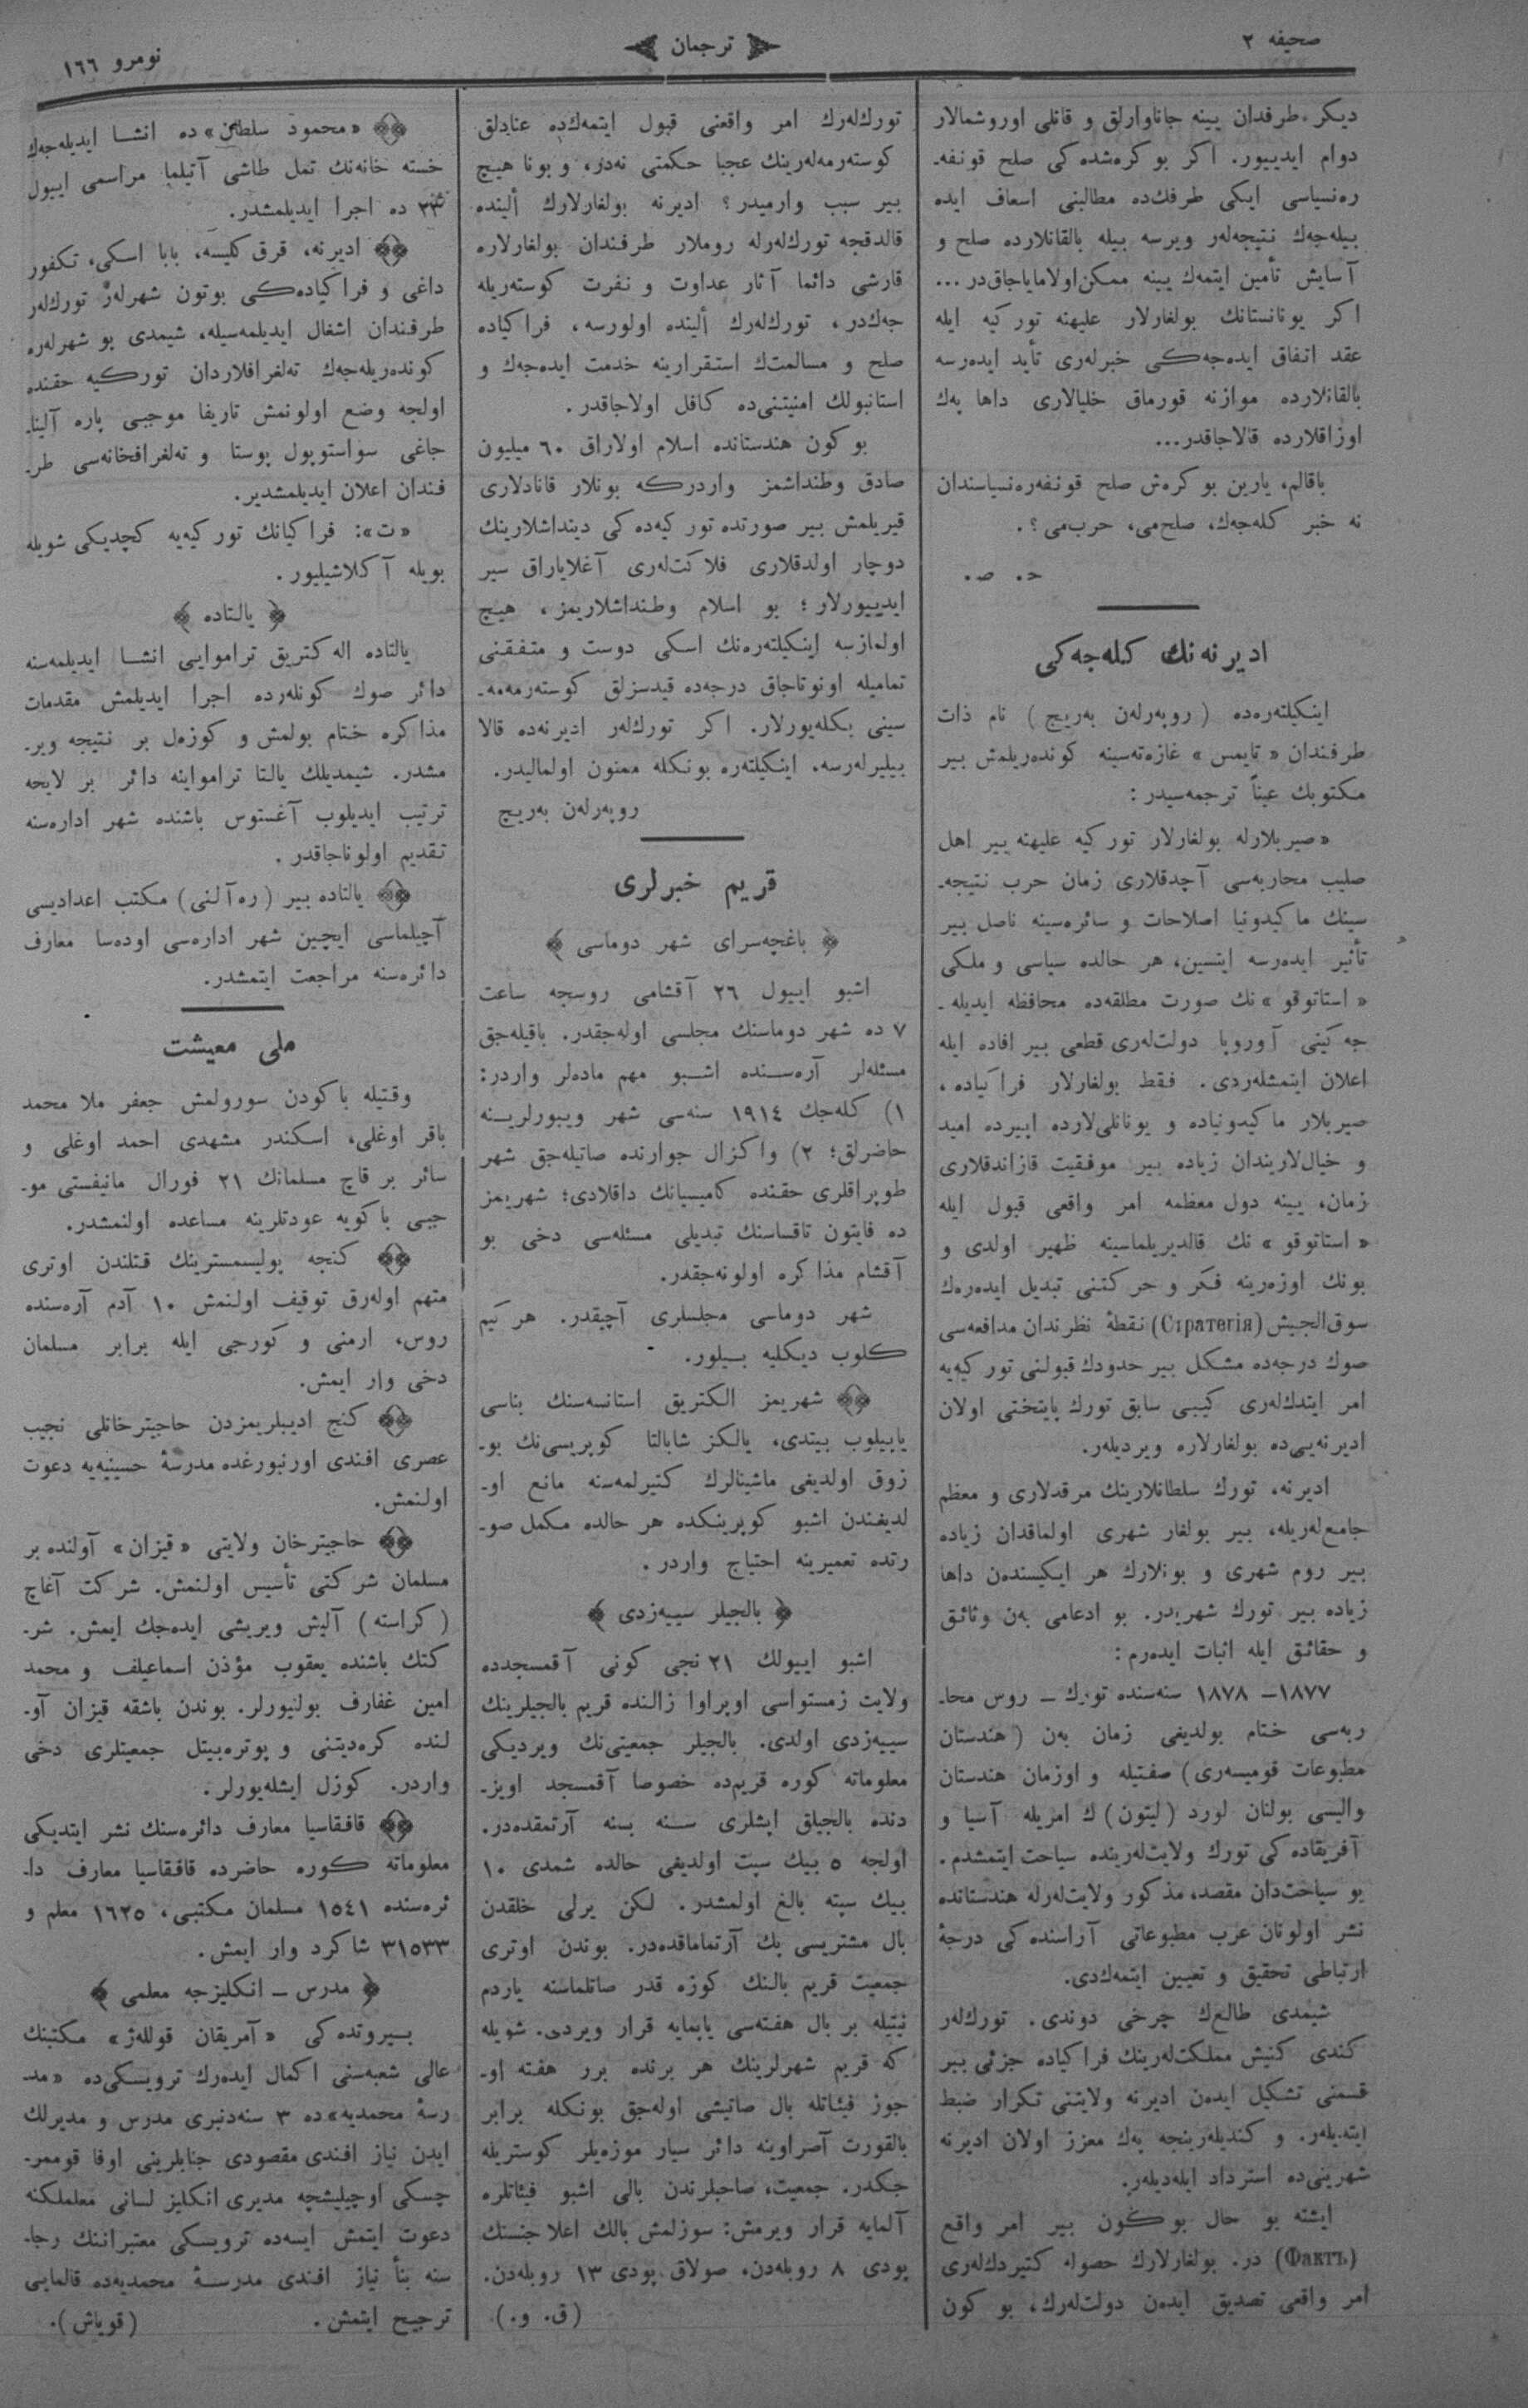 صحیفه ٢
ترجمان
نومرو ١٦٦
دیكر طرفدان یینه جاناوارلق و قانلی اوروشمالار
دوام ایدییور. اكر بو كره‌شده كی صلح قونفه‌ـ
ره‌نسیاسی ایكی طرفك‌ده مطالبنی اسعاف ایده
بیله‌جه‌ك نتیجه‌لەر ویرسه بیله بالقانلارده صلح و
آسایش تأمین ایتمه‌ك یینه ممكن‌اولامایاجاق‌در...
اكر یونانستانك بولغارلار علیهنه توركیه ایله
عقد اتفاق ایده‌جه‌كی خبرلەری تأید ایده‌رسه
بالقانلارده موازنه قورماق خلیالاری داها په‌ك
اوزاقلارده قالاجاقدر...
باقالم، یارین بو كره‌ش صلح قونفه‌ره‌نسیاسندان
نه خبر كله‌جه‌ك، صلح‌می، حرب‌می؟.
ح. ص.
ادیرنه‌نك كله‌جه‌كی
اینكیلتەرەده (روپەرلەن بەریچ) نام ذات
طرفندان «تایمس» غازه‌ته‌سینه كونده‌ریلمش بیر
مكتوبك عیناً ترجمه‌سیدر:
«صیربلارله بولغارلار توركیه علیهنه بیر اهل
صلیب محاربه‌سی آچدقلاری زمان حرب نتیجه‌ـ
سینك ماكیدونیا اصلاحات و سائره‌سینه ناصل بیر
تأثیر ایده‌رسه ایتسین، هر حالده سیاسی و ملكی
«استاتوقو» نك صورت مطلقه‌ده محافظه ایدیله ـ
جه‌كینی آوروپا دولت‌لەری قطعی بیر افاده ایله
اعلان ایتمشلەردی. فقط بولغارلار فراكیاده،
صیربلار ماكیدونیاده و یونانلی‌لارده اپیرده امید
و خیال‌لاریندان زیاده بیر موفقیت قازاندقلاری
زمان، یینه دول معظمه امر واقعی قبول ایله
«استاتوقو» نك قالدیریلماسینه ظهیر اولدی و
بونك اوزه‌رینه فكر و حركتنی تبدیل ایده‌ره‌ك
سوق‌الجیش (Стратегія) نقطهٔ نظرندان مدافعه‌سی
صوك درجه‌ده مشكل بیر حدودك قبولنی توركیه‌یه
امر ایتدك‌لەری كیبی سابق تورك پایتختی اولان
ادیرنه‌یی‌ده بولغارلاره ویردیلەر.
ادیرنه، تورك سلطانلارینك مرقدلاری و معظم
جامع‌لەریله، بیر بولغار شهری اولماقدان زیاده
بیر روم شهری و بونلارك هر ایكیسندەن داها
زیاده بیر تورك شهریدر. بو ادعامی بەن وثائق
و حقائق ایله اثبات ایده‌رم:
١٨٧٧ـ ١٨٧٨ سنه‌سنده تورك ـ روس محاـ
ربه‌سی ختام بولدیغی زمان بەن (هندستان
مطبوعات قومیسه‌ری) صفتیله و اوزمان هندستان
والیسی بولنان لورد (لیتون) ك امریله آسیا و
آفریقاده كی تورك ولایت‌لەرینده سیاحت ایتمشدم.
بو سیاحت‌دان مقصد، مذكور ولایت‌لەرله هندستانده
نشر اولونان عرب مطبوعاتی آراسنده كی درجهٔ
ارتباطی تحقیق و تعیین ایتمه‌ك‌دی.
شیمدی طالع‌ك چرخی دوندی. تورك‌لەر
كندی كنیش مملكت‌لەرینك فراكیاده جزئی بیر
قسمنی تشكیل ایدەن ادیرنه ولایتنی تكرار ضبط
ایتدیلەر. و كندیلەرینجه په‌ك معزز اولان ادیرنه
شهرینی‌ده استرداد ایله‌دیلەر.
ایشته بو حال بوكون بیر امر واقع
(Фактъ) در. بولغارلارك حصوله كتیردك‌لەری
امر واقعی تصدیق ایدەن دولت‌لەرك، بو كون
تورك‌لەرك امر واقعنی قبول ایتمه‌ك‌ده عنادلق
كوسته‌رمه‌لەرینك عجبا حكمتی نه‌در، و بونا هیچ
بیر سبب وارمیدر؟ ادیرنه بولغارلارك ألینده
قالدقجه تورك‌لەرله روملار طرفندان بولغارلاره
قارشی دائما آثار عداوت و نفرت كوسته‌ریله
جه‌ك‌در، تورك‌لەرك ألینده اولورسه، فراكیاده
صلح و مسالمت‌ك استقرارینه خدمت ایده‌جه‌ك و
استانبولك امنیتنی‌ده كافل اولاجاقدر.
بو كون هندستانده اسلام اولاراق ٦٠ میلیون
صادق وطنداشمز واردركه بونلار قانادلاری
قیریلمش بیر صورتده توركیه‌ده كی دینداشلارینك
دوچار اولدقلاری فلاكت‌لەری آغلایاراق سیر
ایدییورلار؛ بو اسلام وطنداشلاریمز، هیچ
اولمازسه اینكیلتەرەنك اسكی دوست و متفقنی
تمامیله اونوتاجاق درجه‌ده قیدسزلق كوسته‌رمه‌مه‌ـ
سینی بكله‌یورلار. اكر تورك‌لەر ادیرنه‌ده قالا
بیلیرلەرسه، اینكیلتەره بونكله ممنون اولمالیدر.
روپەرلەن بەریچ
قریم خبرلری
باغچه‌سرای شهر دوماسی
اشبو اییول ٢٦ آقشامی روسجه ساعت
٧ ده شهر دوماسنك مجلسی اوله‌جقدر. باقیله‌جق
مسئله‌لر آره‌سنده اشبو مهم ماده‌لر واردر:
١) كله‌جك ١٩١٤ سنه‌سی شهر ویبورلرینه
حاضرلق؛ ٢) واكزال جوارنده صاتیله‌جق شهر
طوپراقلری حقنده كامیسیانك داقلادی؛ شهریمز
ده فایتون تاقساسنك تبدیلی مسئله‌سی دخی بو
آقشام مذاكره اولونه‌جقدر.
شهر دوماسی مجلسلری آچیقدر. هر كیم
كلوب دیكلیه بیلور.
شهریمز الكتریق استانسه‌سنك بناسی
یاپیلوب بیتدی، یالكز شابالتا كوپریسی‌نك بوـ
زوق اولدیغی ماشینالرك كتیرلمه‌سنه مانع اوـ
لدیغندن اشبو كوپرینكده هر حالده مكمل صوـ
رتده تعمیرینه احتیاج واردر.
بالجیلر سییه‌زدی
اشبو اییولك ٢١ نجی كونی آقمسجدده
ولایت زمستواسی اوپراوا زالنده قریم بالجیلرینك
سییه‌زدی اولدی. بالجیلر جمعیتی‌نك ویردیكی
معلوماته كوره قریم‌ده خصوصا آقمسجد اویزـ
دنده بالجیلق ایشلری سنه بسنه آرتمقده‌در.
اولجه ٥ بیك سپت اولدیغی حالده شمدی ١٠
بیك سپته بالغ اولمشدر. لكن یرلی خلقدن
بال مشتریسی پك آرتماماقده‌در. بوندن اوتری
جمعیت قریم بالنك كوزه قدر صاتلماسنه یاردم
نیتیله بر بال هفته‌سی یاپمایه قرار ویردی. شویله
كه قریم شهرلرینك هر برنده برر هفته اوـ
جوز فیئاتله بال صاتیشی اوله‌جق بونكله برابر
بالقورت آصراوینه دائر سیار موزه‌یلر كوستریله
جكدر. جمعیت، صاحبلرندن بالی اشبو فیئاتلره
آلمایه قرار ویرمش: سوزلمش بالك اعلا جنسنك
پودی ٨ روبله‌دن، صولاق پودی ١٣ روبله‌دن.
(ق. و.)
«محمود سلطان» ده انشا ایدیله‌جه‌ك
خسته خانه‌نك تمل طاشی آتیلما مراسمی اییول
٢٣ ده اجرا ایدیلمشدر.
ادیرنه، قرق كلیسه، بابا اسكی، تكفور
داغی و فراكیاده‌كی بوتون شهرلەر تورك‌لەر
طرفندان اشغال ایدیلمه‌سیله، شیمدی بو شهرلەره
كونده‌ریله‌جه‌ك ته‌لغرافلاردان توركیه حقنده
اولجه وضع اولونمش تاریفا موجبی پاره آلیناـ
جاغی سواستوپول پوستا و ته‌لغرافخانه‌سی طرـ
فندان اعلان ایدیلمشدیر.
«ت»: فراكیانك توركیه‌یه كچدیكی شویله
بویله آكلاشیلیور.
یالتاده
یالتاده اله‌كتریق تراموایی انشا ایدیلمه‌سنه
دائر صوك كونلەرده اجرا ایدیلمش مقدمات
مذاكره ختام بولمش و كوزەل بر نتیجه ویرـ
مشدر. شیمدیلك یالتا تراموا‌ینه دائر بر لایحه
ترتیب ایدیلوب آغستوس باشنده شهر اداره‌سنه
تقدیم اولوناجاقدر.
یالتاده بیر (ره‌آلنی) مكتب اعدادیسی
آچیلماسی ایچین شهر اداره‌سی اوده‌سا معارف
دائره‌سنه مراجعت ایتمشدر.
ملی معیشت
وقتیله باكودن سورولمش جعفر ملا محمد
باقر اوغلی، اسكندر مشهدی احمد اوغلی و
سائر بر قاچ مسلمانك ٢١ فورال مانیفستی موـ
جبی باكویه عودتلرینه مساعده اولنمشدر.
كنجه پولیسمسترینك قتلندن اوتری
متهم اوله‌رق توقیف اولنمش ١٠ آدم آره‌سنده
روس، ارمنی و كورجی ایله برابر مسلمان
دخی وار ایمش.
كنج ادیبلریمزدن حاجیترخانلی نجیب
عصری افندی اورنبورغده مدرسهٔ حسینیه‌یه دعوت
اولنمش.
حاجیترخان ولایتی «قیزان» آولنده بر
مسلمان شركتی تأسیس اولنمش. شركت آغاچ
(كراسته) آلیش ویریشی ایده‌جك ایمش. شرـ
كتك باشنده یعقوب مؤذن اسماعیلف و محمد
امین غفارف بولنیورلر. بوندن باشقه قیزان آوـ
لنده كره‌دیتنی و پوتره‌بیتل جمعیتلری دخی
واردر. كوزل ایشله‌یورلر.
قافقاسیا معارف دائره‌سنك نشر ایتدیكی
معلوماته كوره حاضرده قافقاسیا معارف داـ
ئره‌سنده ١٥٤١ مسلمان مكتبی، ١٦٢٥ معلم و
٣١٥٣٣ شاكرد وار ایمش.
مدرس ـ انكلیزجه معلمی
بیروتده كی «آمریقان قوللەژ» مكتبنك
عالی شعبه‌سنی اكمال ایده‌رك ترویسكی‌ده «مدـ
رسهٔ محمدیه» ده ٣ سنه‌دنبری مدرس و مدیرلك
ایدن نیاز افندی مقصودی جنابلرینی اوفا قوممرـ
چسكی اوچیلیشچه مدیری انكلیز لسانی معلملكنه
دعوت ایتمش ایسه‌ده ترویسكی معتبراننك رجاـ
سنه بنأ نیاز افندی مدرسهٔ محمدیه‌ده قالمایی
ترجیح ایتمش. (قویاش).